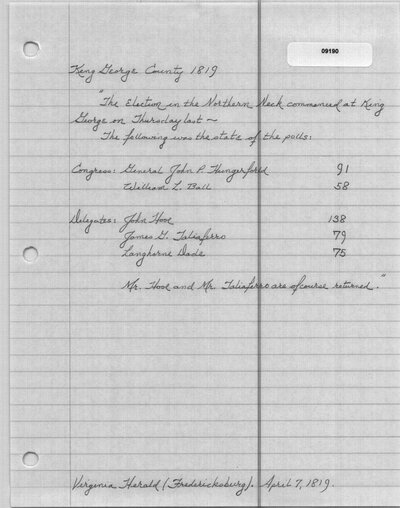 09190
King George County 1819
"The Election in the Northern Neck commenced at King
George on Thursday last —
The following was the state of the polls:
Congress: General John P. Hungerford 91
William L. Ball 58
Delegates: John Hooe 138
James G. Taliaferro 79
Langhorne Dade 75
Mr. Hooe and Mr. Taliaferro are of course returned."
Virginia Herald (Fredericksburg). April 7, 1819.